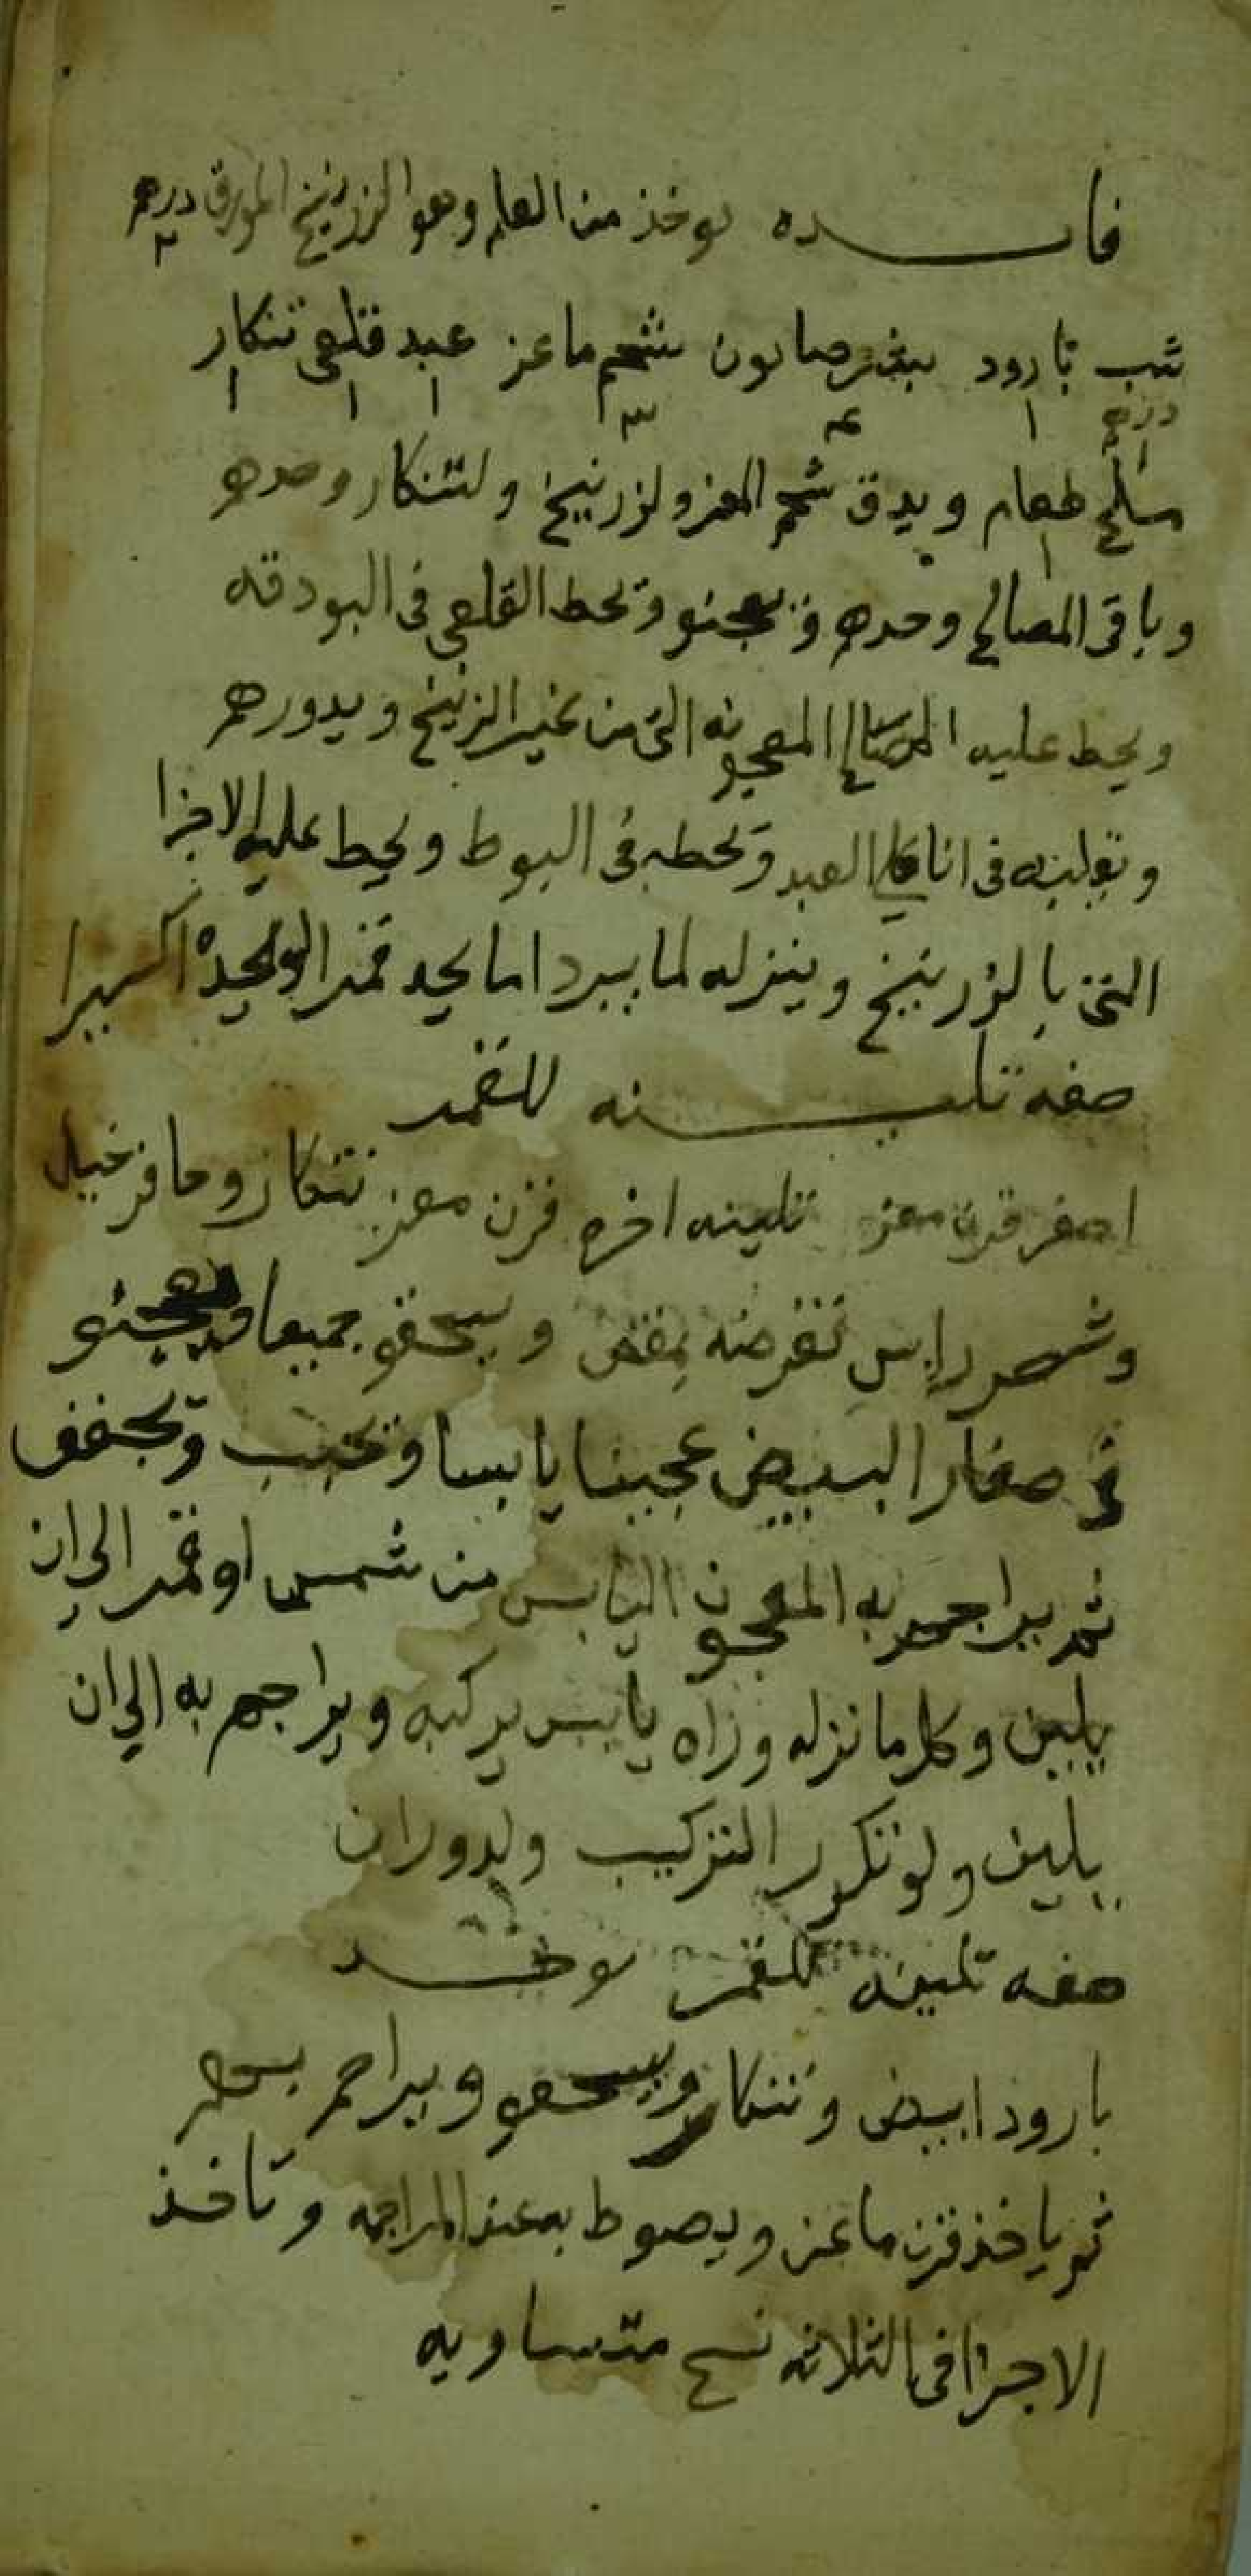 فايـــده يوخذ من العلم وهو الزرنيخ المورق درهم ٢
شب بارود صابون شحم ماعز عبد قلعي تنكار
درهم ١ ١ ٤ ٣ ١ ١ ١
ملح طعام ويدق شحم المعز ولزرنيخ ولتنكار وحدهم ١
وباقي المصالح وحدهم وتعجنو وتحط القلعي في البودقه
ويحط عليه المصالح المعجونه التي من غير الزرنيخ ويدورهم
في انا العبد وتحطه في البوط ويحط عليه الاجزا
التي بالزرنيخ وينزله لما يبرد اما يجد قمرا او يجده اكسيرا
صفه تلينه للقمر
اصفر قرن معز تلينه اخره قرن معز تنكار وحافر خيل
وشعر راس تقرضه بمقص ويسحقو جميعا ويعجنو
في صفار البيض عجينا يابسا وتحبب وتجفف
ثم يراجم به المعجون اليابس من شمس او قمر الي ان
يلين وكل ما نزله وراه يابس يركبه ويراجم به الي ان
يلين ولو تكرر التركيب ولدوران
صفه تلينه للقمر يوخـد
بارود ابيض وتنكار ويسحقو ويراجم بهم
ثم ياخذ قرن ماعز ويصوط به عند المراجمه وتاخذ
الاجزا في الثلاثه نسخ متساويه